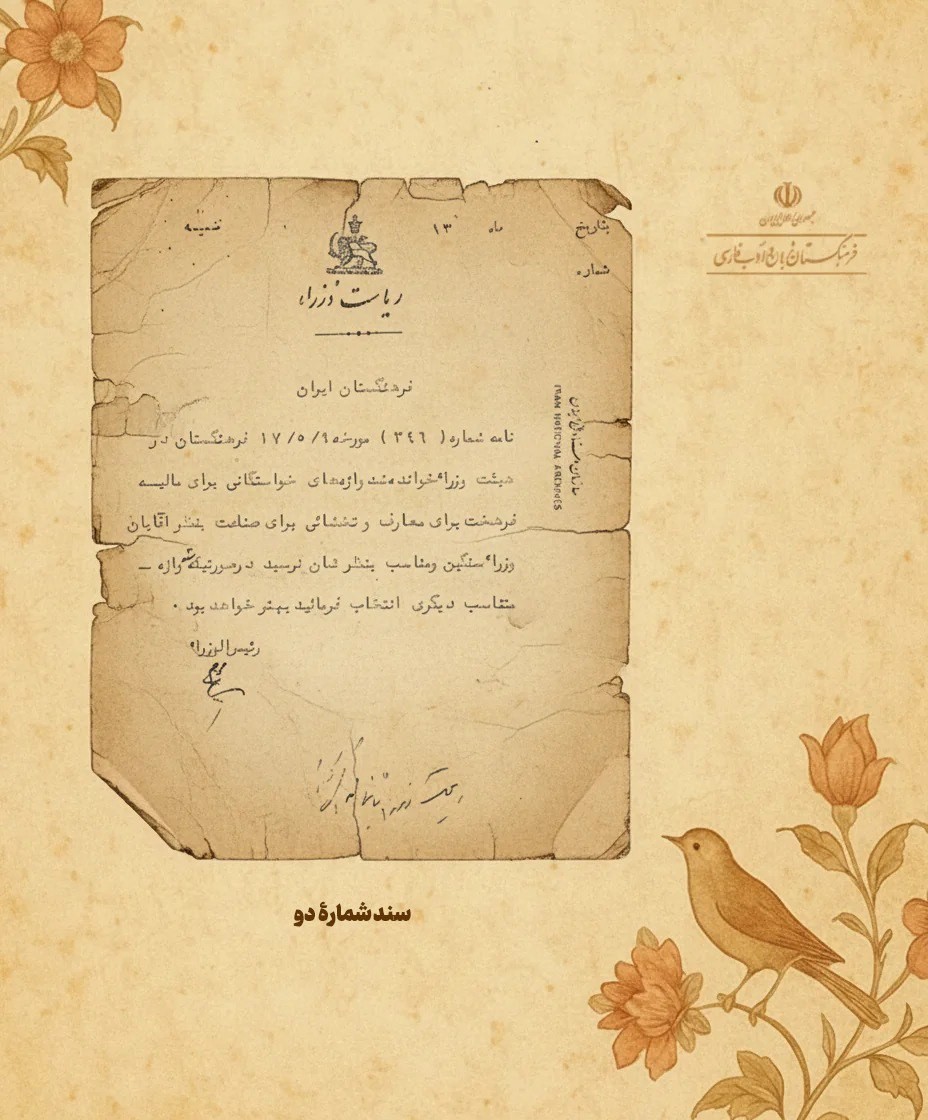 جمهوری اسلامی ایران
فرهنگستان زبان و ادب فارسی
تاریخ ماه ۱۳ ضمیمه
شماره
ریاست وزراء
فرهنگستان ایران
نامه شماره ( ٣٤٦ ) مورخه ۱۷/٥/۹ فرهنگستان در
هیئت وزراء خوانده شد واژه‌های خواستگانی برای مالیه
فرهخت برای معارف و تخشائی برای صناعت بنظر آقایان
وزراء سنگین ومناسب بنظر شان نرسید درصورتیکه واژه –
متناسب دیگری انتخاب فرمائید بهتر خواهد بود .
رئیس الوزراء
سازمان اسناد ملی ایران
IRAN NATIONAL ARCHIVES
سند شمارهٔ دو